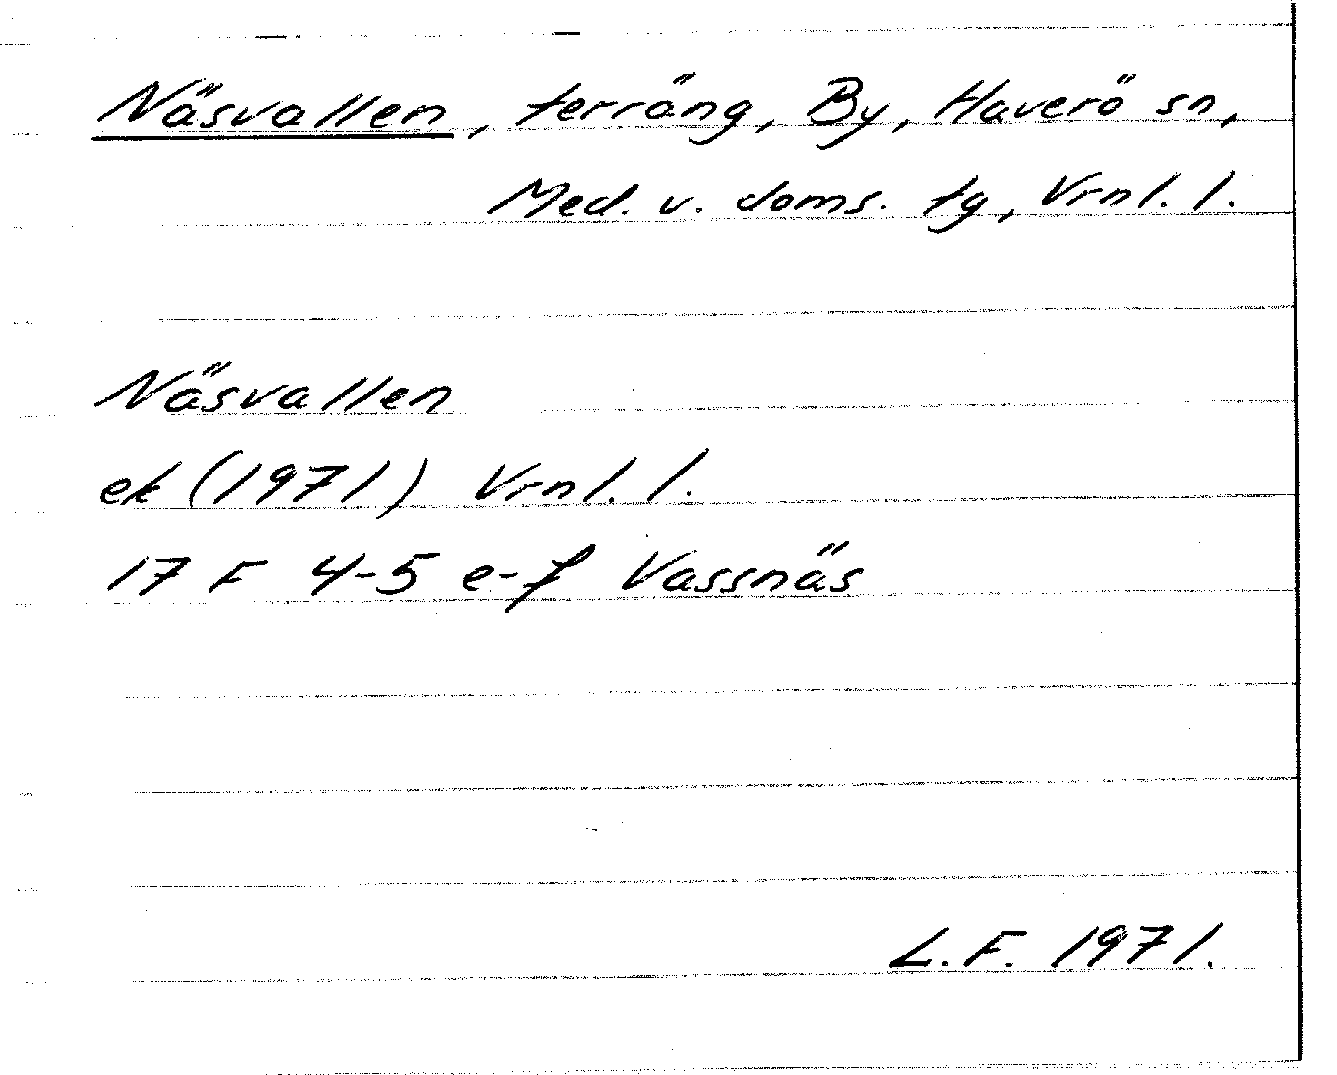 Näsvallen, terräng, By, Haverö sn,
Med. v. doms. tg, Vrnl. l.
Näsvallen
ek (1971) Vrnl. l.
17 F 4-5 e-f Vassnäs
L.F. 1971.